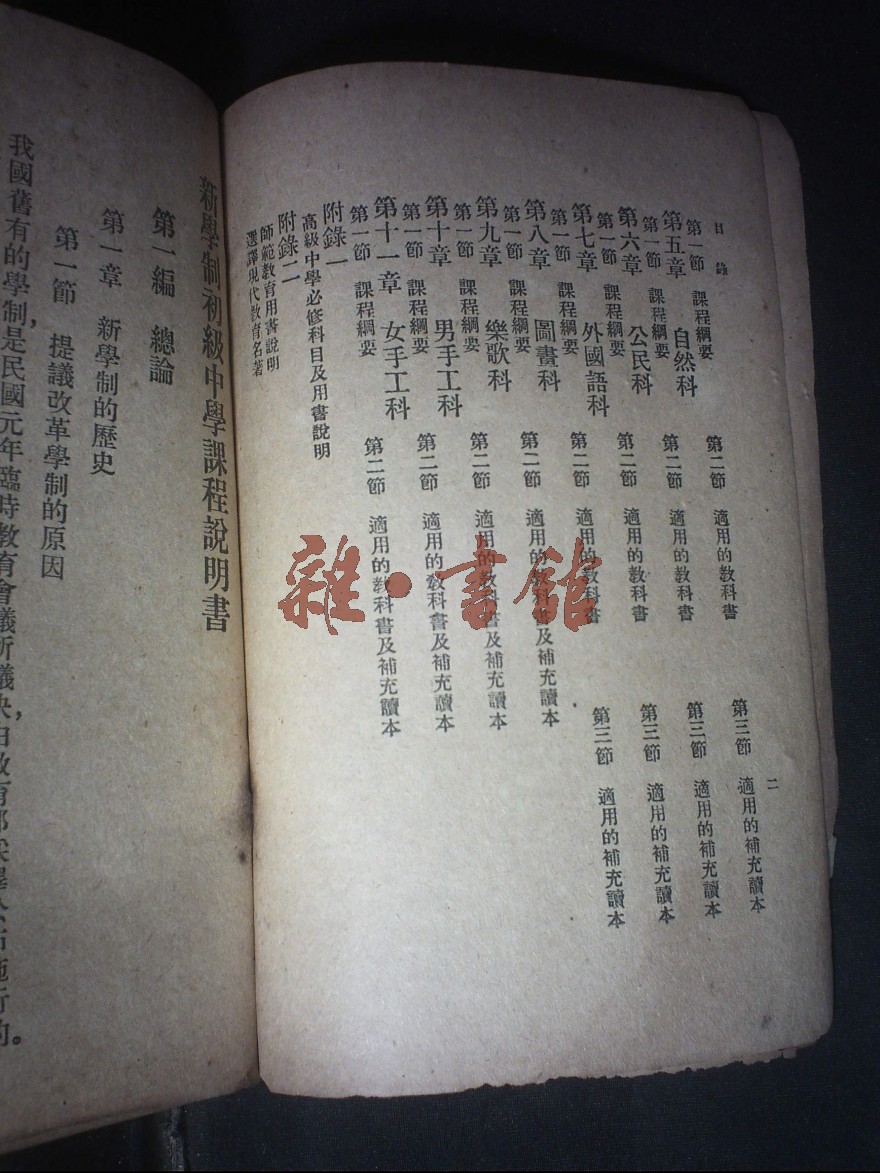 目錄 二
第一節 課程綱要 第二節 適用的教科書 第三節 適用的補充讀本
第五章 自然科
第一節 課程綱要 第二節 適用的教科書 第三節 適用的補充讀本
第六章 公民科
第一節 課程綱要 第二節 適用的教科書 第三節 適用的補充讀本
第七章 外國語科
第一節 課程綱要 第二節 適用的教科書 第三節 適用的補充讀本
第八章 圖畫科
第一節 課程綱要 第二節 適用的教科書及補充讀本
第九章 樂歌科
第一節 課程綱要 第二節 適用的教科書及補充讀本
第十章 男手工科
第一節 課程綱要 第二節 適用的教科書及補充讀本
第十一章 女手工科
第一節 課程綱要 第二節 適用的教科書及補充讀本
附錄一
高級中學必修科目及用書說明
附錄二
師範教育用書說明
選譯現代教育名著
新學制初級中學課程說明書
第一編 總論
第一章 新學制的歷史
第一節 提議改革學制的原因
我國舊有的學制，是民國元年臨時教育會議所議決，由教育部採擇公布施行的。
雜·書館